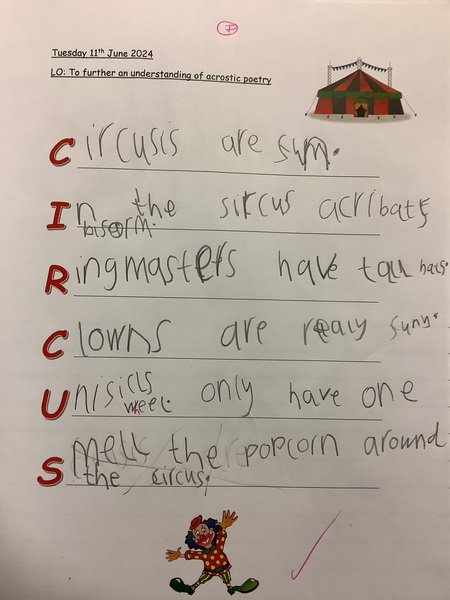 Tuesday 11th June 2024
LO: To further an understanding of acrostic poetry
Circusis are sum.
In the sircus acribats
biseorm.
Ringmasters have tall hats.
Clowns are realy suny.
Unisicls only have one
weel.
Smell the popcorn around
the circus.